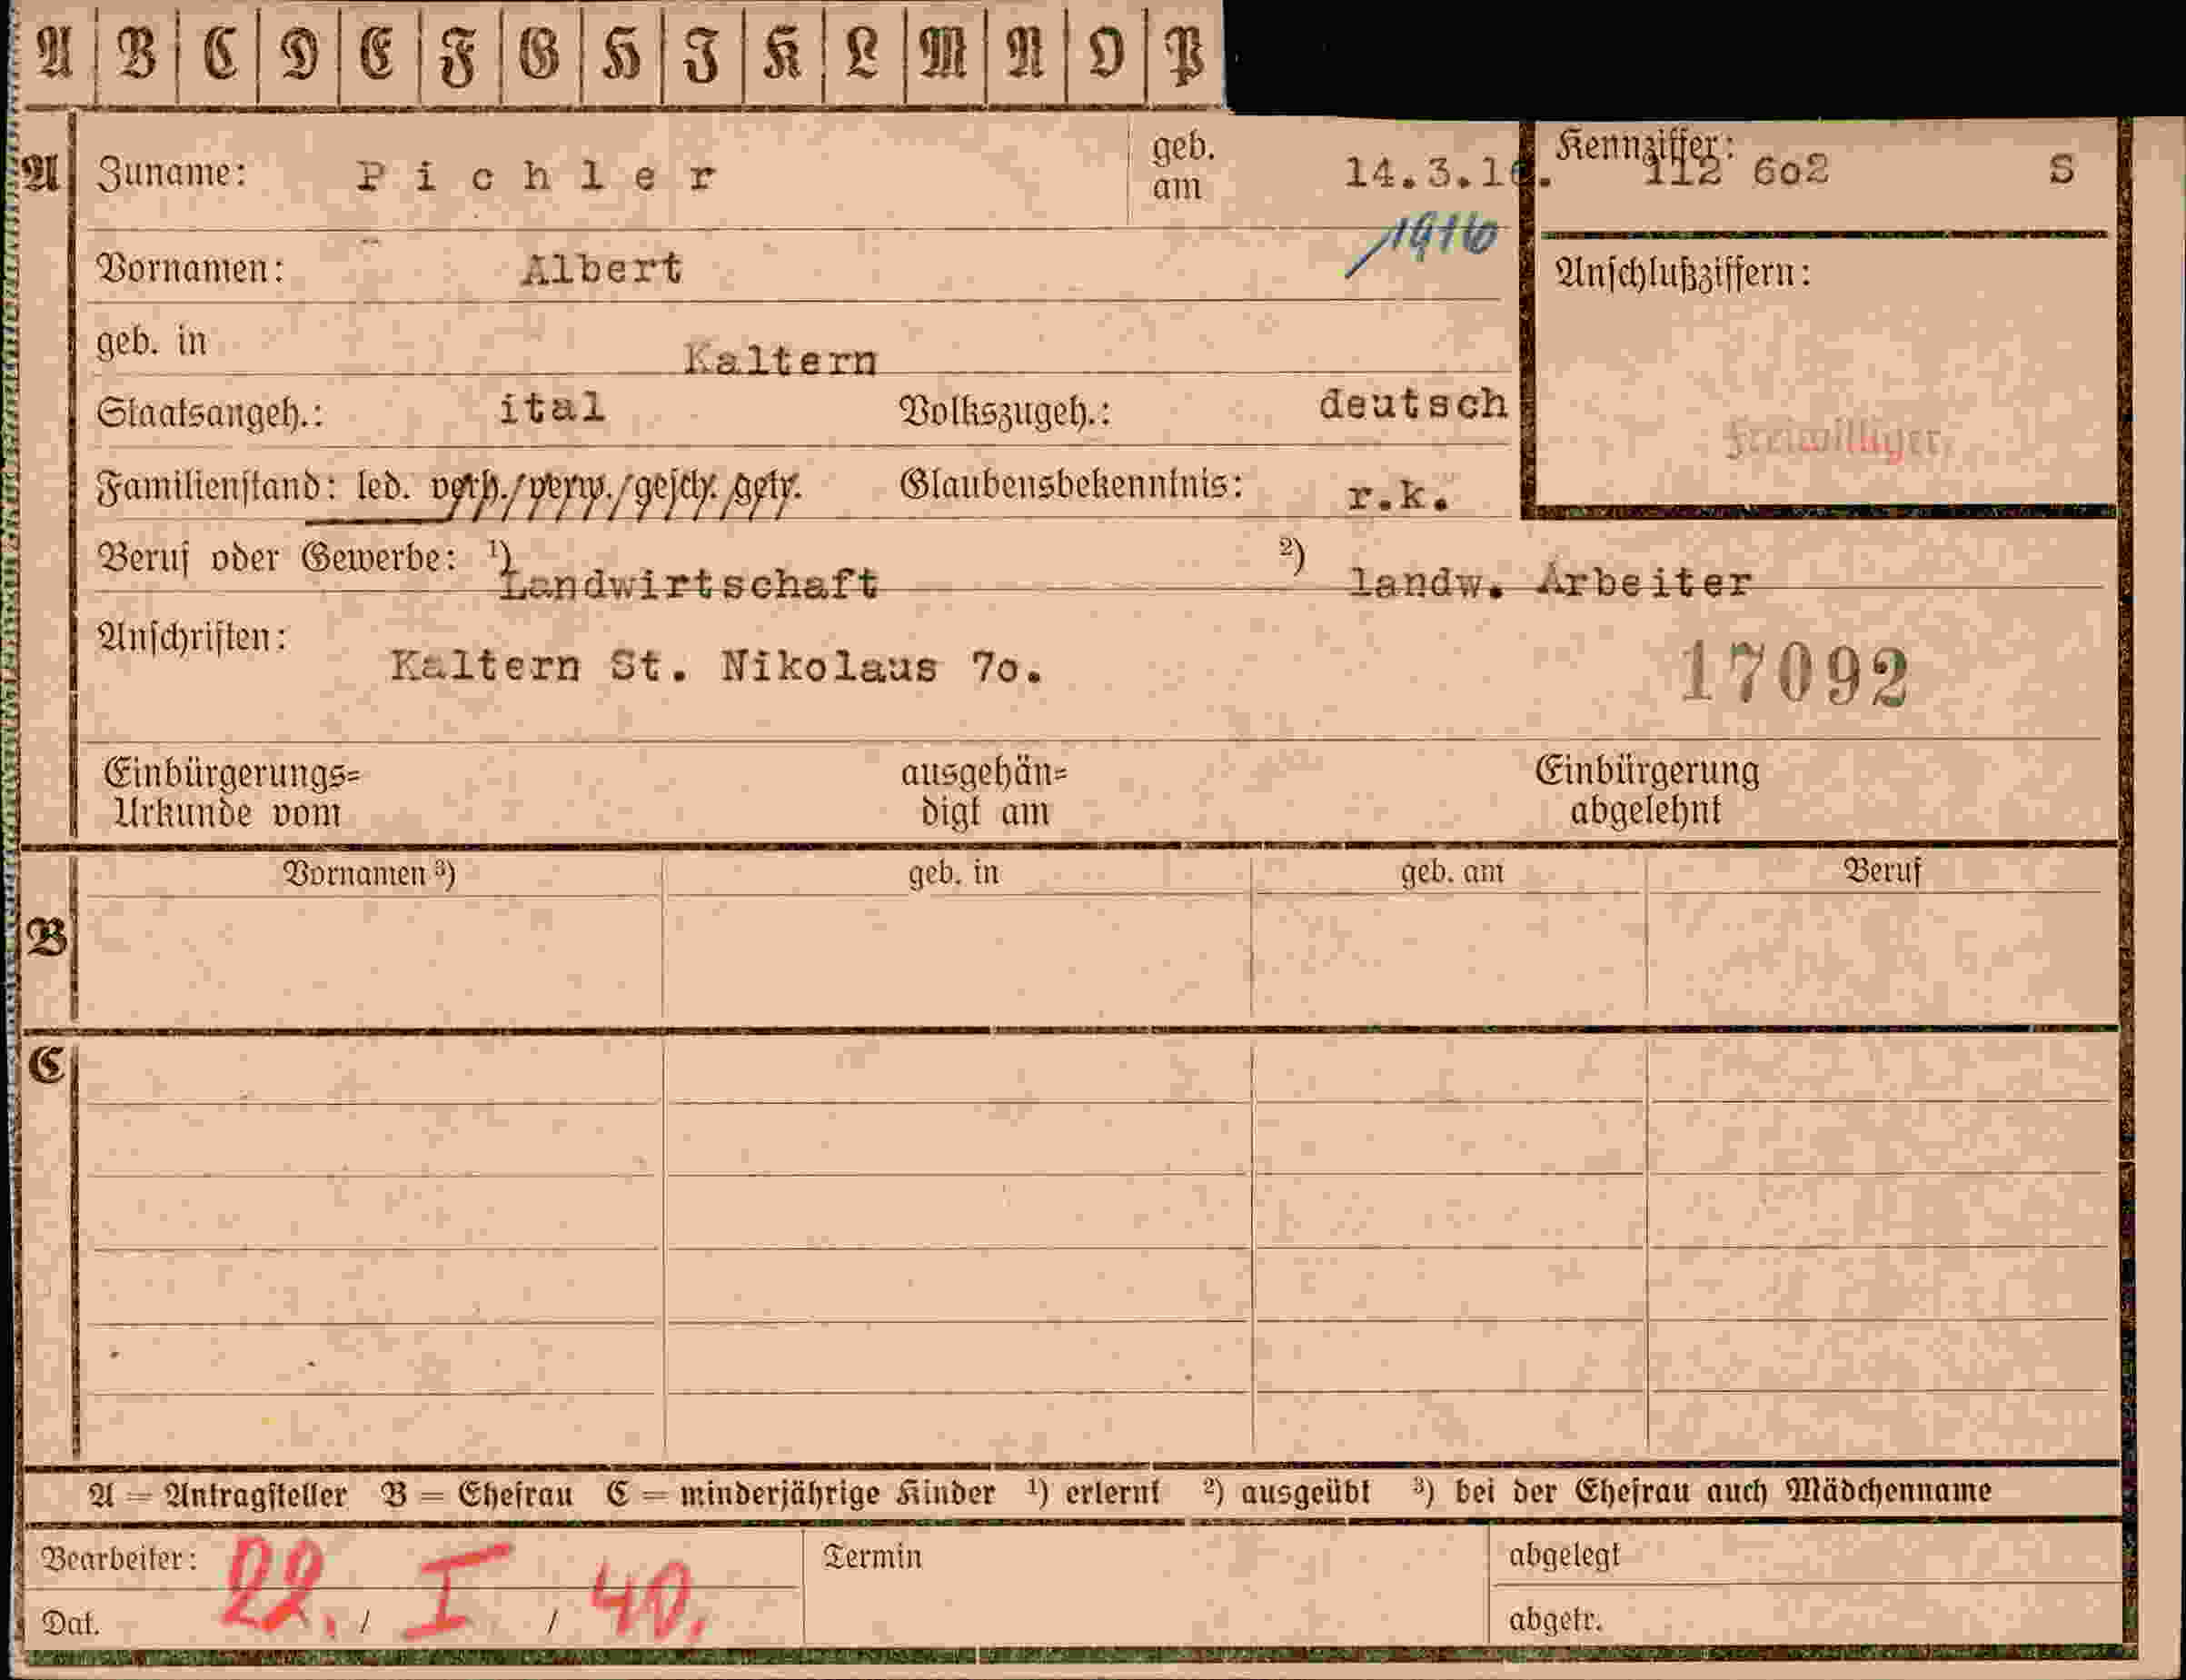 A B C D E F G H I K L M N O P
A Zuname: Pichler geb. am 14.3.16. Kennziffer: 112 602 S
1916
Vornamen: Albert Anschlußziffern:
geb. in Kaltern
Staatsangeh.: ital Volkszugeh.: deutsch
Freiwilliger,
Familienstand: led. verh./verw./gesch. getr. Glaubensbekenntnis: r.k.
Beruf oder Gewerbe: 1) Landwirtschaft 2) landw. Arbeiter
Anschriften: Kaltern St. Nikolaus 70.
17092
Einbürgerungs= ausgehän= Einbürgerung
Urkunde vom digt am abgelehnt
Vornamen 3) geb. in geb. am Beruf
B
C
A = Antragsteller B = Ehefrau C = minderjährige Kinder 1) erlernt 2) ausgeübt 3) bei der Ehefrau auch Mädchenname
Bearbeiter: Termin abgelegt
Dat. 22. / I / 40. abgetr.